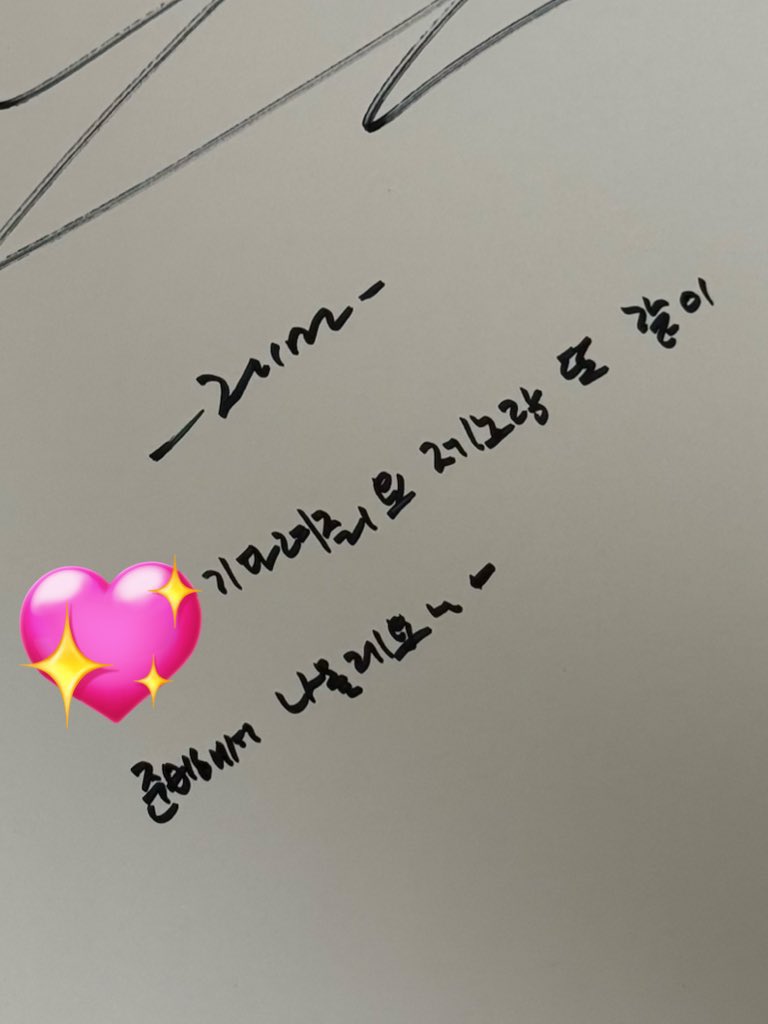 기다려줘요 제노랑 또 같이
준비해서 나올게요~